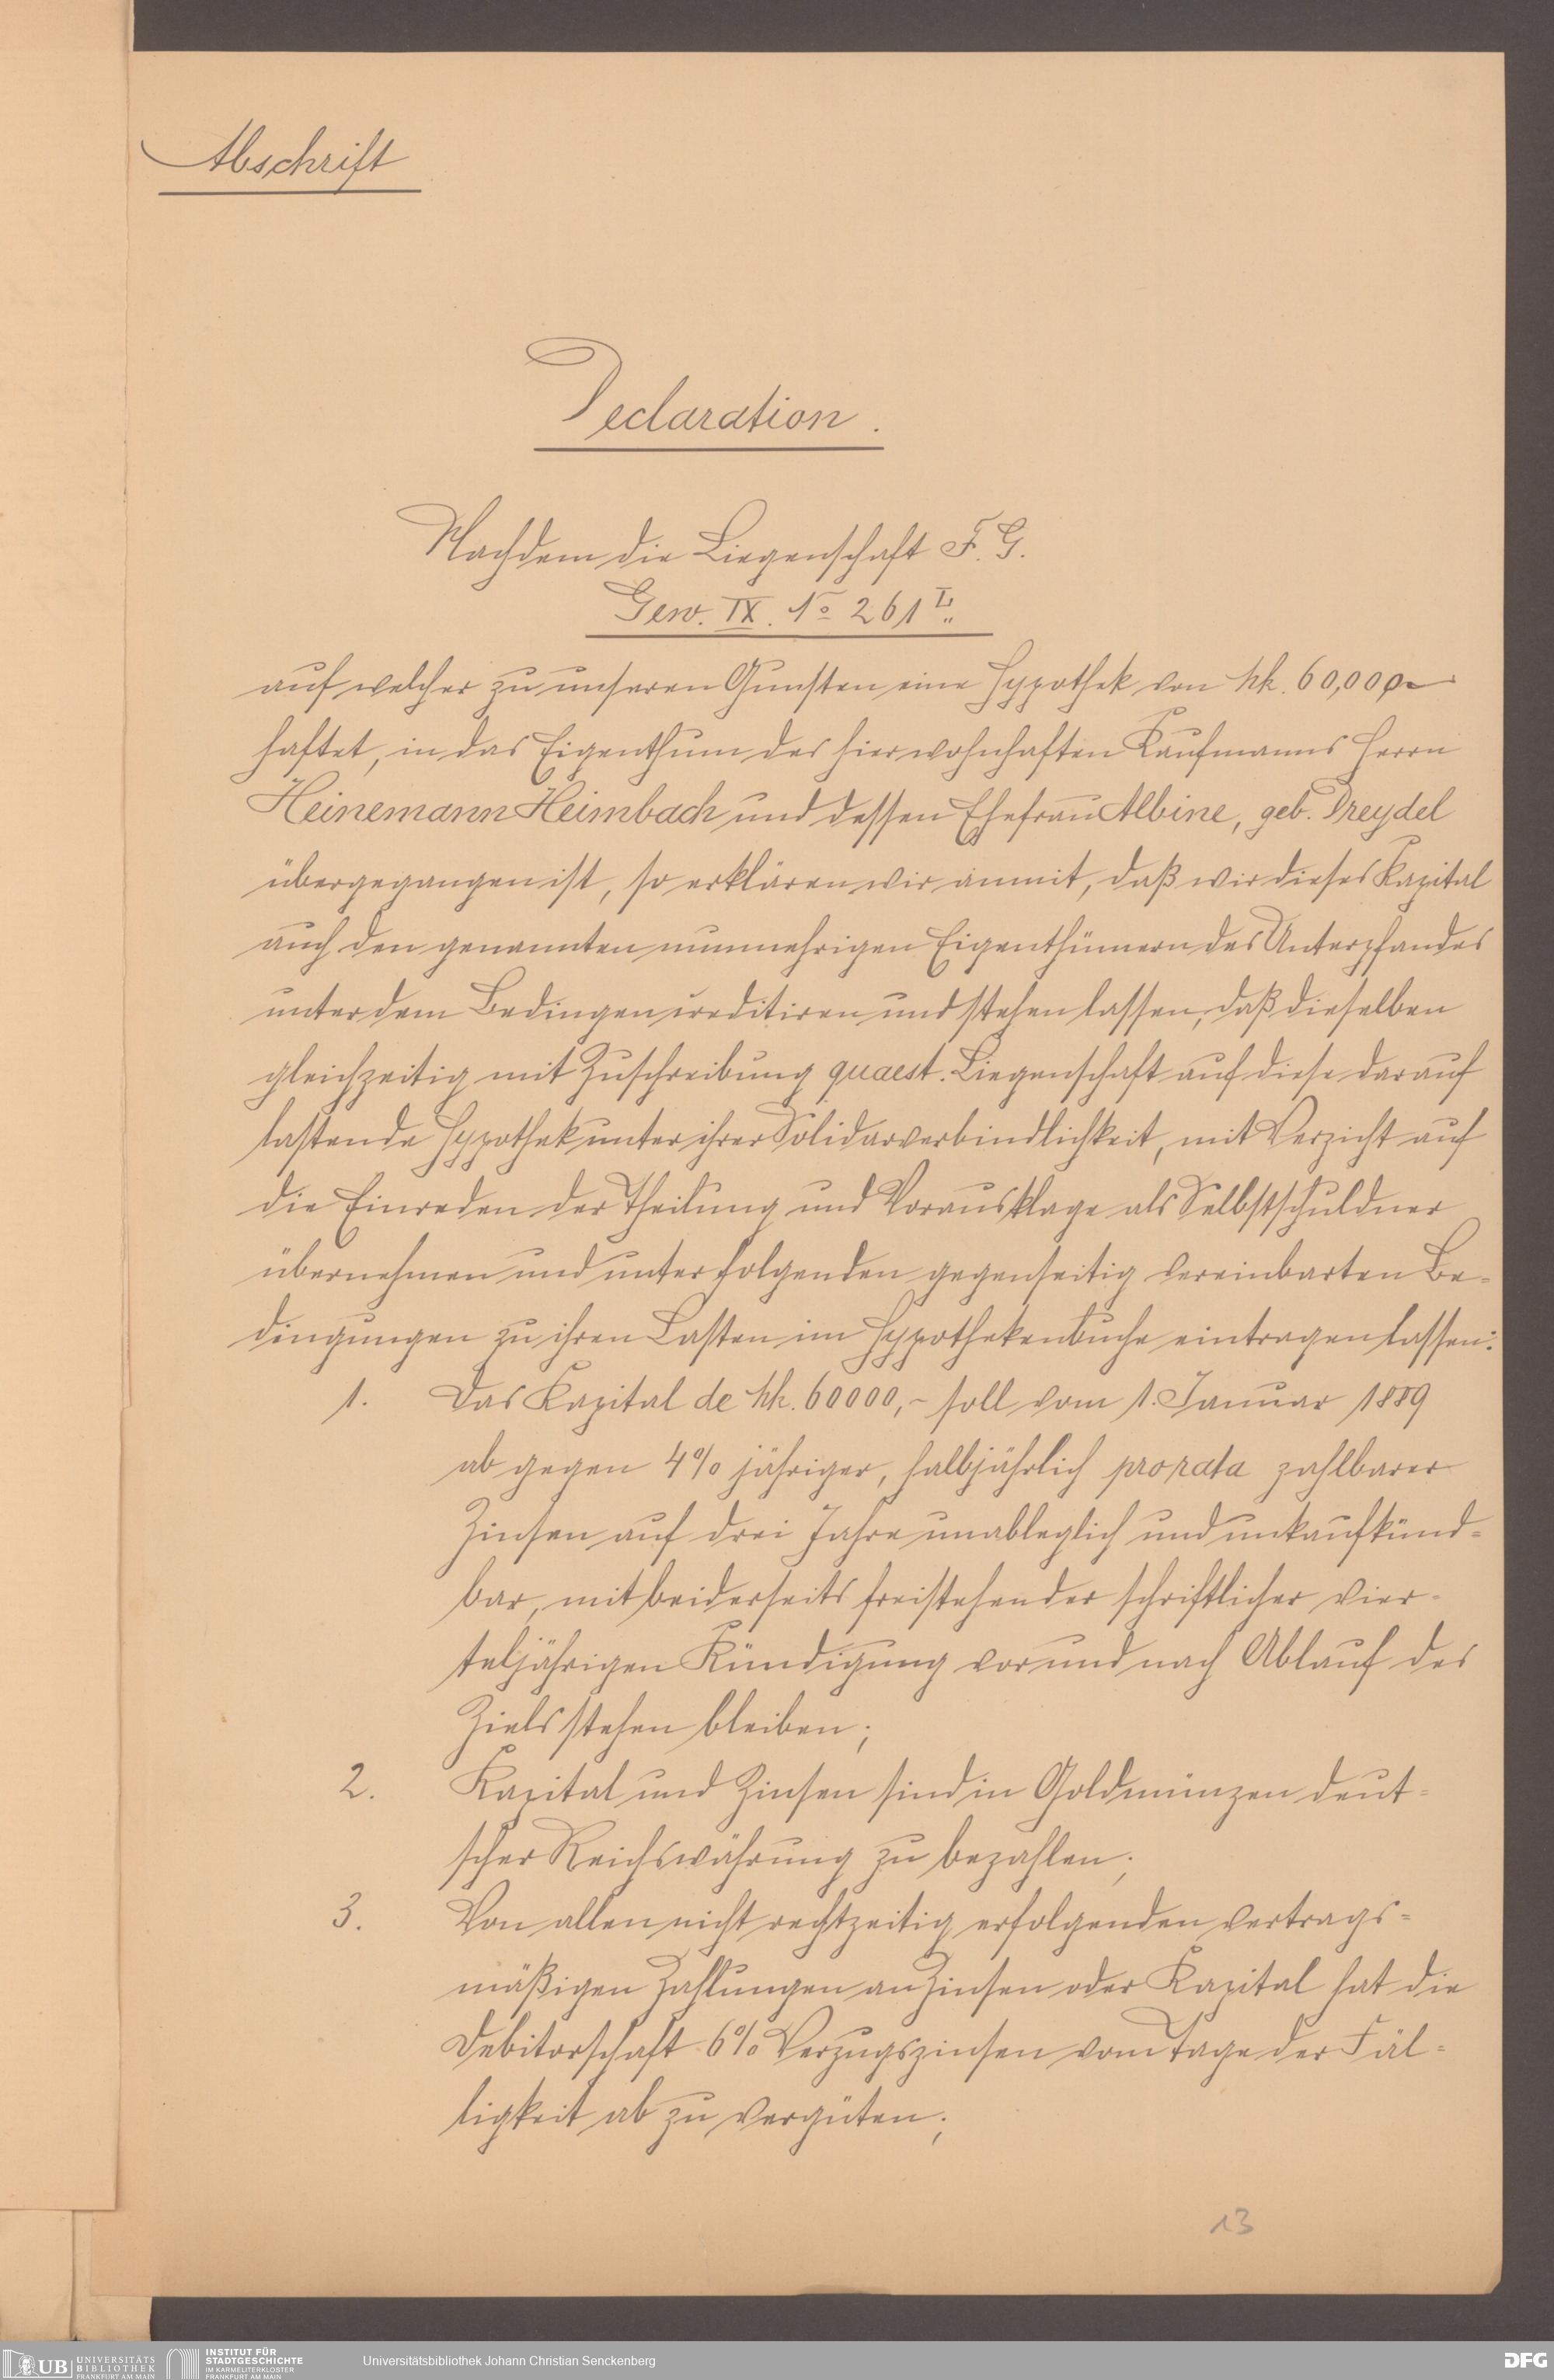 Abschrift
Declaration.
Nachdem die Liegenschaft F. G.
Gew. IX. No 261 I.
auf welcher zu unseren Gunsten eine Hypothek von Mk. 60,000,-
haftet, in das Eigenthum des hier wohnhaften Kaufmanns Herrn
Heinemann Heimbach und dessen Ehefrau Albine, geb. Dreydel
übergegangen ist, so erklären wir anmit, daß wir dieses Kapital
auch den genannten nunmehrigen Eigenthümern des Unterpfandes
unter dem Bedingen creditiren und stehen lassen, daß dieselben
gleichzeitig mit Zuschreibung quaest. Liegenschaft auf diese darauf
lastende Hypothek unter ihrer Solidarverbindlichkeit, mit Verzicht auf
die Einreden der Theilung und Vorausklage als Selbstschuldner
übernehmen und unter folgenden gegenseitig vereinbarten Be-
dingungen zu ihren Lasten im Hypothekenbuche eintragen lassen:
1. Das Kapital de Mk. 60000,- soll vom 1. Januar 1889
ab gegen 4% jähriger, halbjährlich pro rata zahlbarer
Zinsen auf drei Jahre unableglich und unkaufkünd-
bar, mit beiderseits freistehender schriftlicher vier-
teljährigen Kündigung vor und nach Ablauf des
Ziels stehen bleiben;
2. Kapital und Zinsen sind in Goldmünzen deut-
scher Reichswährung zu bezahlen;
3. Von allen nicht rechtzeitig erfolgenden vertrags-
mäßigen Zahlungen an Zinsen oder Kapital hat die
Debitorschaft 6% Verzugszinsen vom Tage der Fäl-
ligkeit ab zu vergüten;
13
UB UNIVERSITÄTS BIBLIOTHEK FRANKFURT AM MAIN
INSTITUT FÜR STADTGESCHICHTE IM KARMELITERKLOSTER FRANKFURT AM MAIN
Universitätsbibliothek Johann Christian Senckenberg
DFG